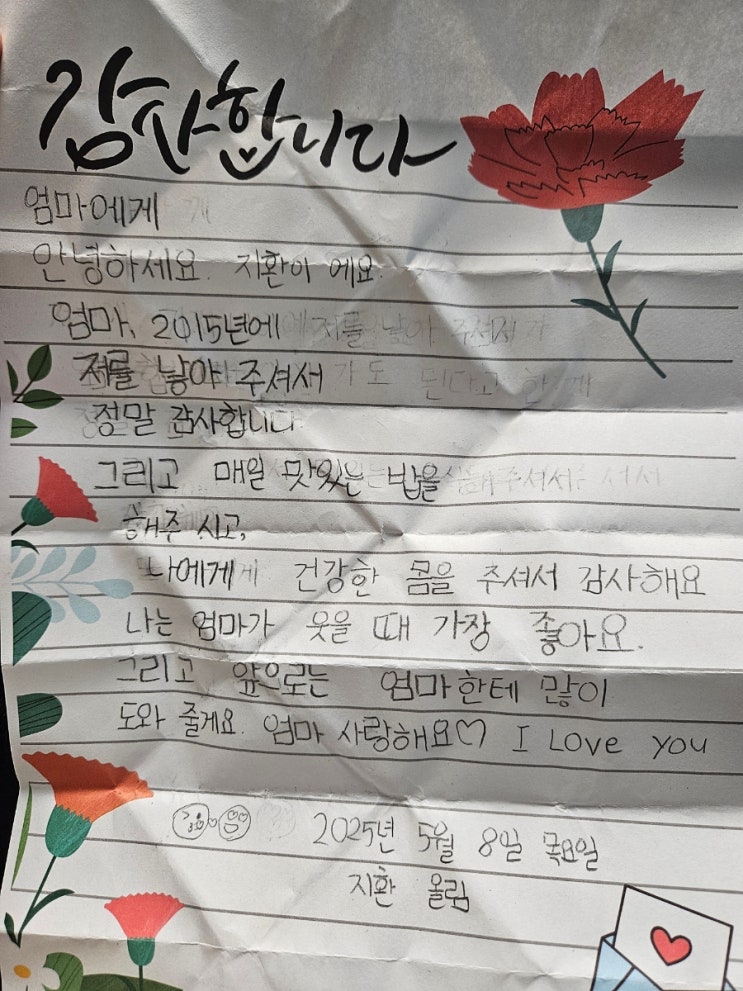 감사합니다
엄마에게
안녕하세요. 지환이 에요.
엄마, 2015년에
저를 낳아 주셔서
정말 감사합니다
그리고 매일 맛있는 밥을
해주시고,
나에게 건강한 몸을 주셔서 감사해요
나는 엄마가 웃을 때 가장 좋아요.
그리고 앞으로는 엄마한테 많이
도와 줄게요. 엄마 사랑해요♡ I Love you
2025년 5월 8일 목요일
지환 올림